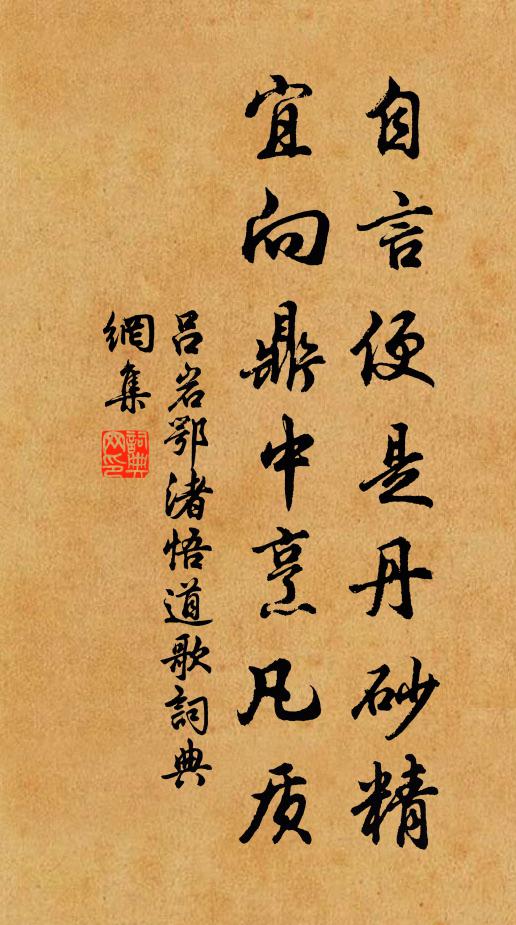 自言便是丹砂精
宜向鼎中烹凡质
吕岩鄂渚悟道歌詞典
網集
詞典
网印